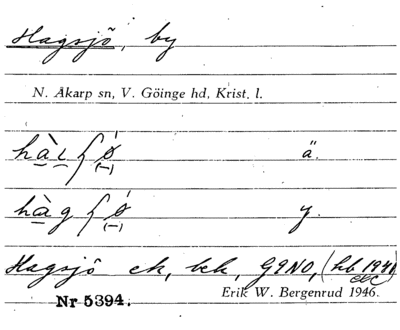 Hagsjö, by
N. Åkarp sn, V. Göinge hd, Krist. l.
hàiʃø ä.
hàgʃø y.
Hagsjö ek, bek, G9NO, (hb 1941)
Erik W. Bergenrud 1946.
Nr 5394.